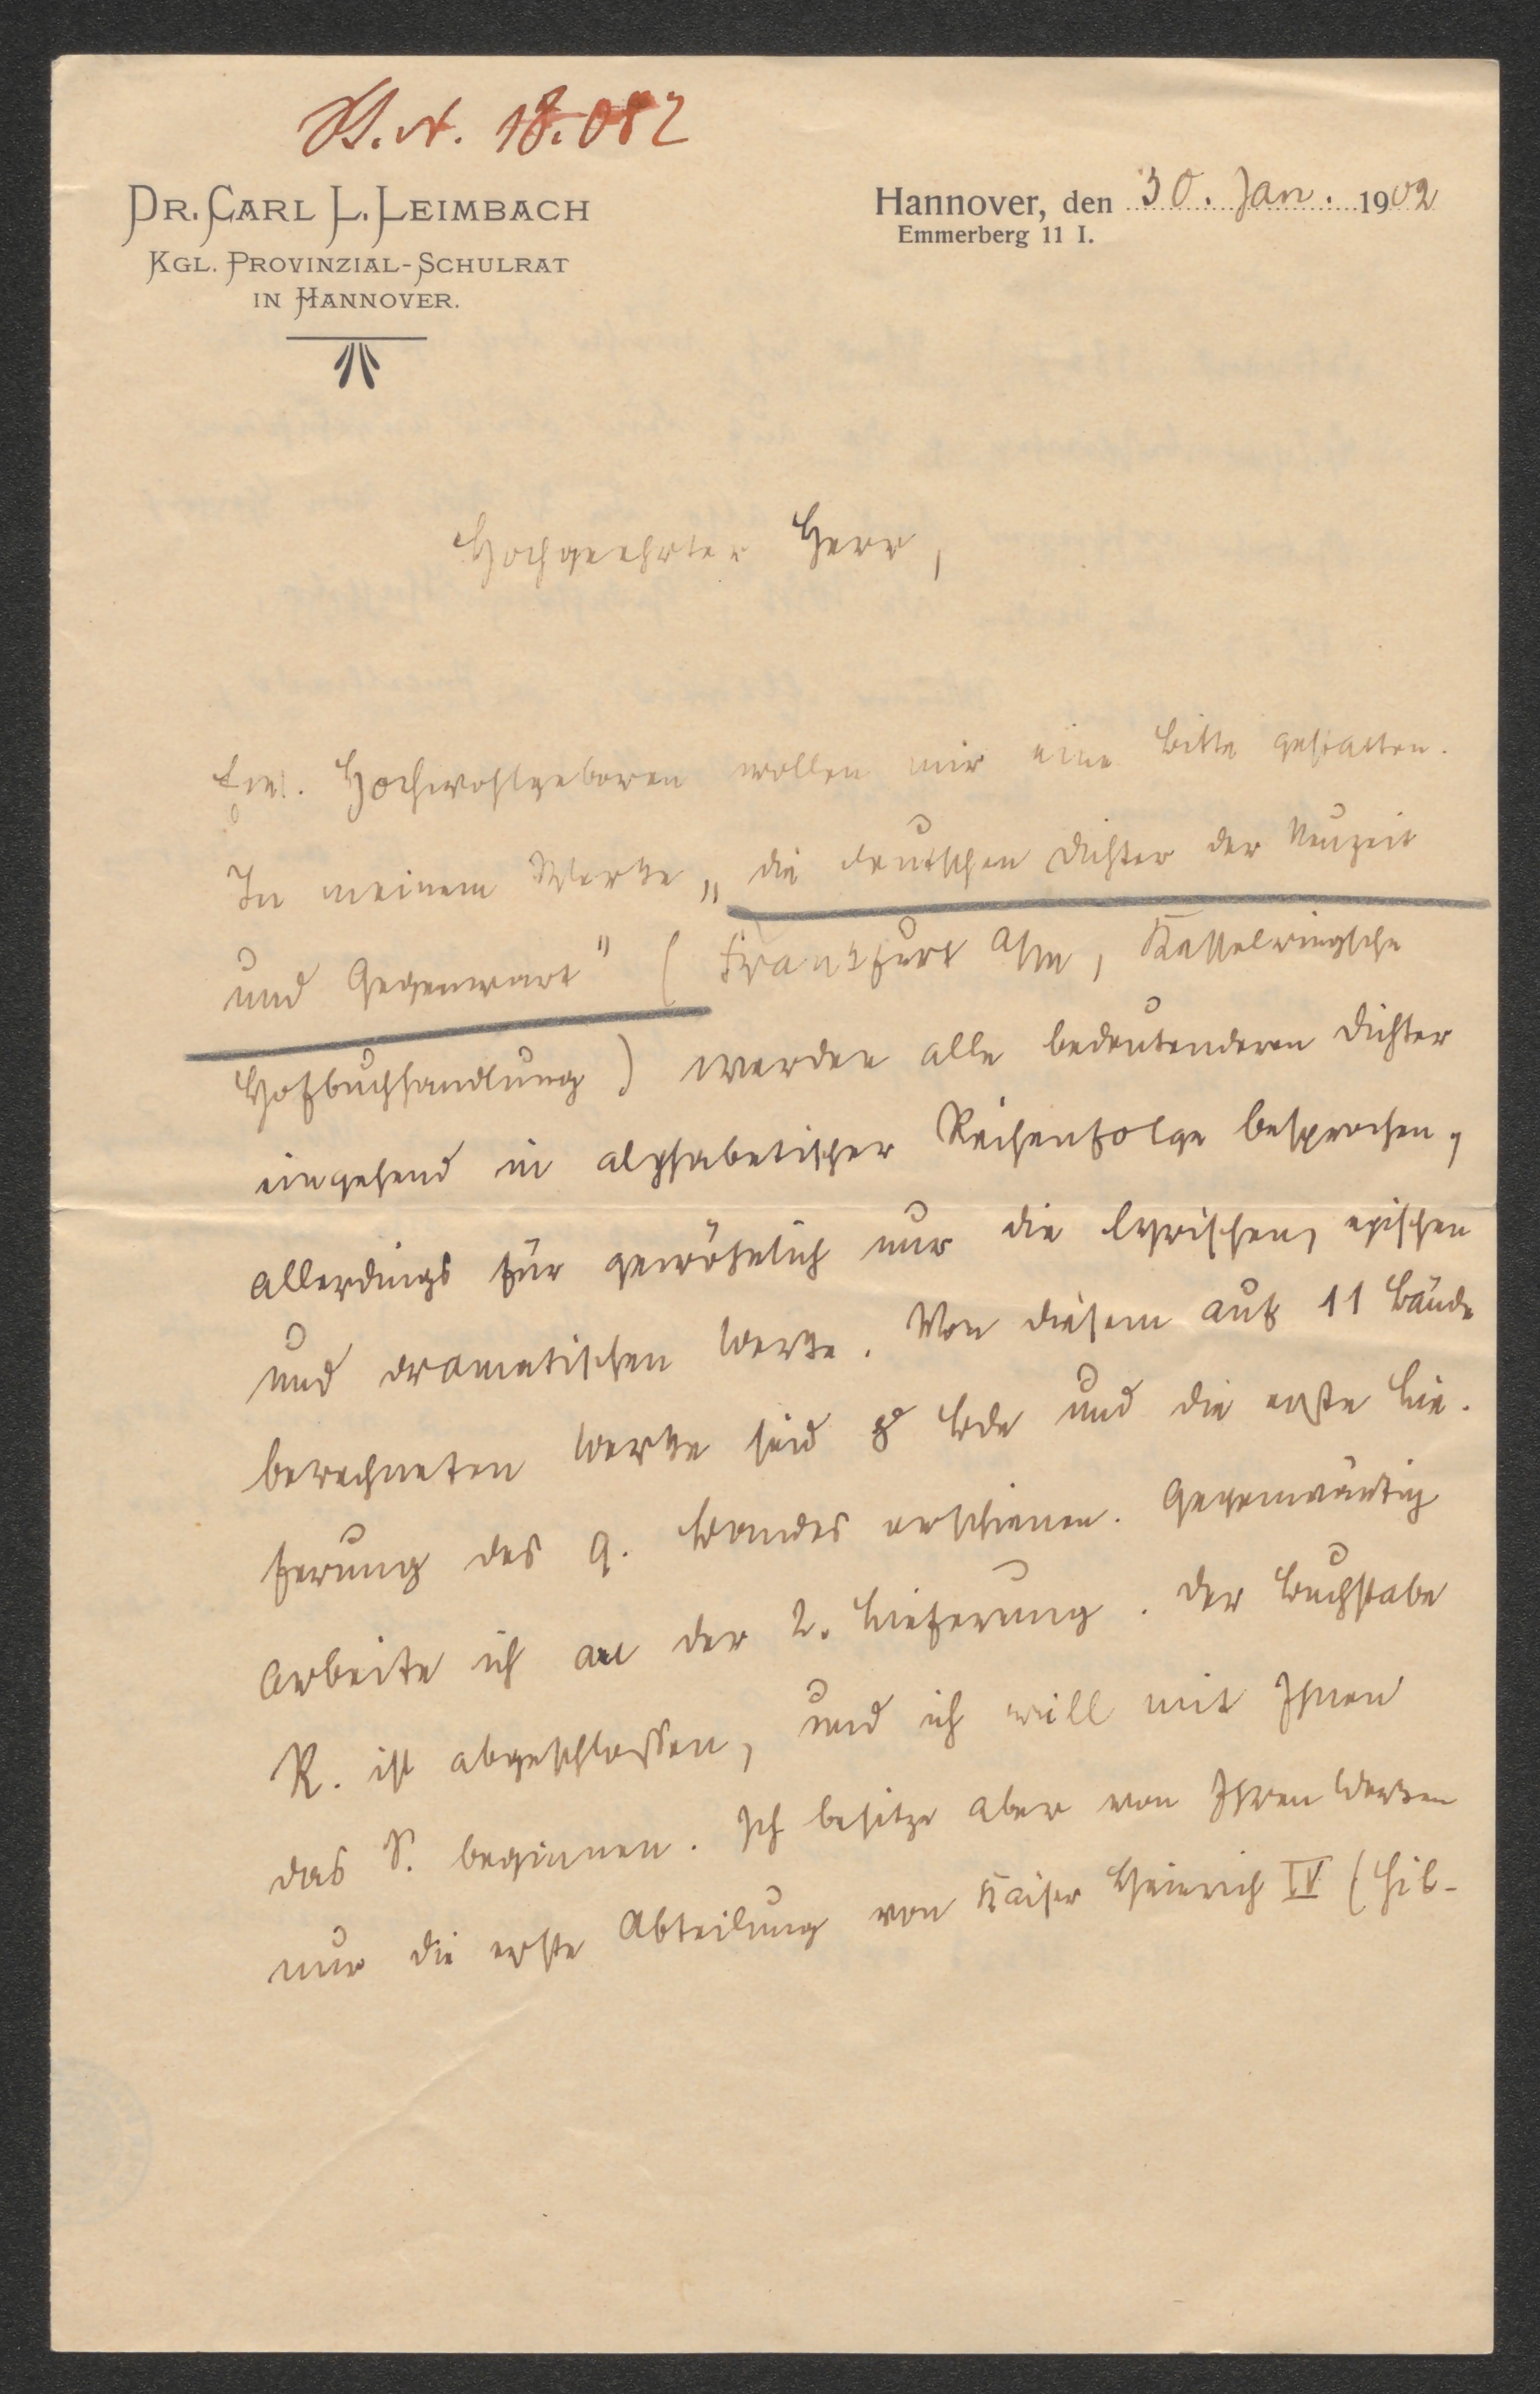 18.082
DR. CARL L. LEIMBACH
KGL. PROVINZIAL-SCHULRAT
IN HANNOVER.
Hannover, den 30. Jan. 1902
Emmerberg 11 I.
Hochgeehrter Herr,
Ew. Hochwohlgeboren wollen mir eine Bitte gestatten.
In meinem Werke „die deutschen Dichter der Neuzeit
und Gegenwart" (Frankfurt a/m, Kesselringsche
Hofbuchhandlung) werden alle bedeutenderen Dichter
eingehend in alphabetischer Reihenfolge besprochen,
allerdings für gewöhnlich nur die lyrischen, epischen
und dramatischen Werke. Von diesem auf 11 Bände
berechneten Werke sind 8 Bde und die erste Lie-
ferung des 9. Bandes erschienen. Gegenwärtig
arbeite ich an der 2. Lieferung. Der Buchstabe
R. ist abgeschlossen, und ich will mit Ihnen
das S. beginnen. Ich besitze aber von Ihren Werken
nur die erste Abteilung von Kaiser Heinrich IV